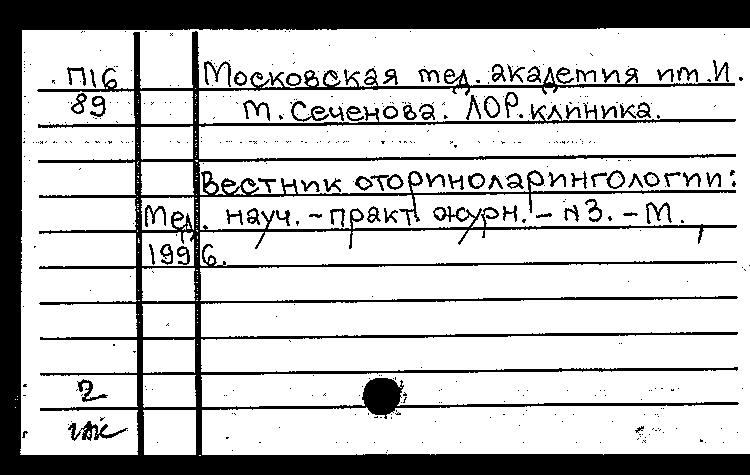 П16 Московская мед. академия им. И.
89 М. Сеченова. ЛОР. клиника.
Вестник оториноларингологии:
Мед. науч. - практ. журн. - №3. - М.,
1996.
2